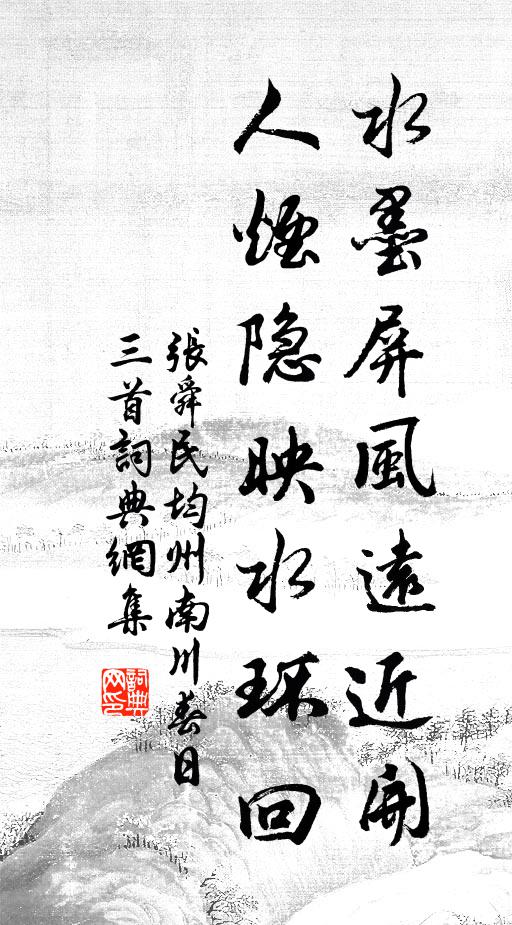 水墨屏風遠近開
人煙隐映水環回
張舜民均州南川春日
三首詞典網集
詞典網印